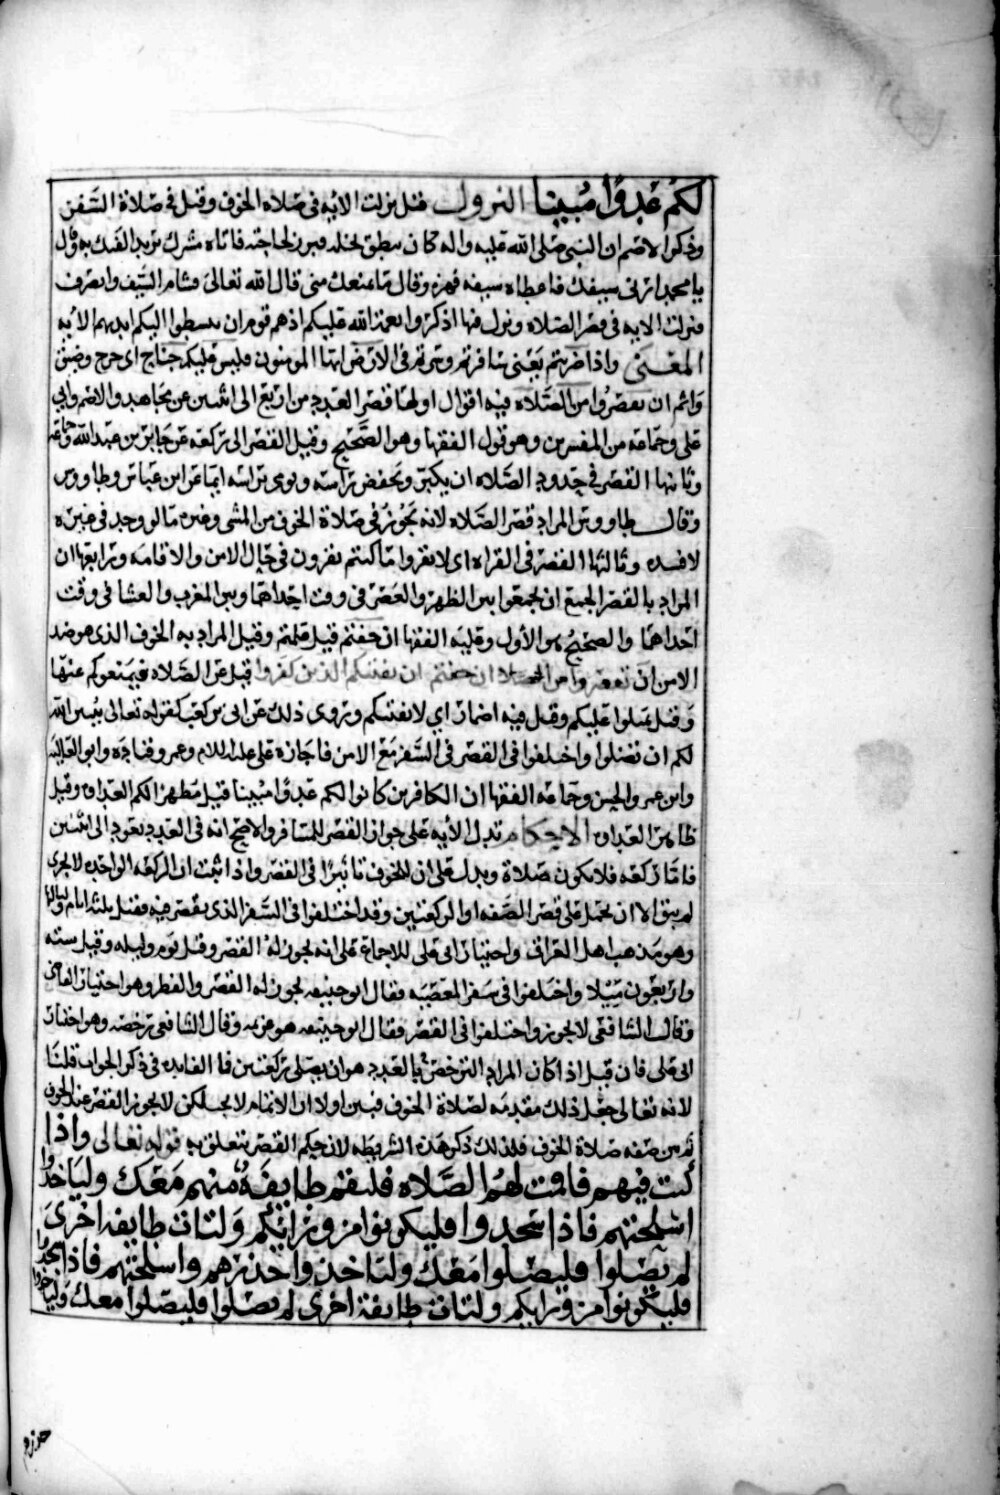 لكم عدوا مبينا النزول قيل نزلت الآية في صلاة الخوف وقيل في صلاة السفر
وذكر الاصم ان النبي صلى الله عليه واله كان ببطن نخله فبرز لحاجته فاتاه مشرك يريد الفتك به وقال
يا محمد ارني سيفك فاعطاه سيفه فهزه وقال ما يمنعك مني قال الله تعالى فشام السيف وانصرف
فنزلت الايه في قصر الصلاه ونزل فيها اذكروا نعمة الله عليكم اذ هم قوم ان يبسطوا اليكم ايديهم الايه
المعنى واذا ضربتم يعني سافرتم وسرتم في الارض ايها المومنون فليس عليكم جناح اي حرج وضيق
واثم ان تقصروا من الصلاه فيه اقوال اولها قصر العدد من اربع الى اثنين عن مجاهد والاصم وابي
علي وجماعه من المفسرين وهو قول الفقها وهو الصحيح وقيل القصر الى ركعه عن جابر بن عبد الله وجماعه
وثانيها القصر في حدود الصلاه ان يكبر ويخفض راسه ويومي براسه ايما عن ابن عباس وطاووس
وقال طاووس المراد قصر الصلاه لانه يجوز في صلاة الخوف من المشي وغيره ما لو وجد في غيره
لافسده وثالثها القصر في القراه اي لا تقروا ما كنتم تقرون في حال الامن والاقامه ورابعها ان
المراد بالقصر الجمع ان يجمعوا بين الظهر والعصر في وقت احداهما وبين المغرب والعشا في وقت
احداهما والصحيح هو الأول وعليه الفقها ان خفتم قيل علمتم وقيل المراد به الخوف الذي هو ضد
الامن ان تقصروا من الصلاة ان خفتم ان يفتنكم الذين كفروا قيل عن الصلاه فيمنعوكم عنها
وقيل يميلوا عليكم وقيل فيه اضمار اي لا يفتنكم وتروى ذلك عن ابي بن كعب كقوله تعالى يبين الله
لكم ان تضلوا واختلفوا في القصر في السفر مع الامن فاجازه علي عليه السلام وعمر وقتاده وابو العاليه
وابن عمر والحسن وجماعه الفقها ان الكافرين كانوا لكم عدوا مبينا قيل مظهرا لكم العداوه وقيل
ظاهر العداوه الاحكام تدل الآيه على جواز القصر للمسافر والاصح انه في العدد يعود الى اثنتين
فاما ركعه فلا تكون صلاة ويدل على ان للخوف تاثيرا في القصر واذا ثبت ان الركعه الواحده لا تجزي
لم يبق الا ان يحمل على قصر الصفه او الركعتين وقد اختلفوا في السفر الذي يقصر فيه فقيل ثلثه ايام ولياليها
وهو مذهب اهل العراق واختيار ابي علي للاجماع على انه يجوز له القصر وقيل يوم وليله وقيل سته
واربعون ميلا واختلفوا في سفر المعصيه فقال ابو حنيفه يجوز له القصر والفطر وهو اختيار القاضي
وقال الشافعي لا يجوز واختلفوا في القصر فقال ابو حنيفه هو عزيمه وقال الشافعي رخصه وهو اختيار
ابي علي فان قيل اذا كان المراد الترخص بالعدد هو ان يصلى ركعتين فما الفايده في ذكر الجواب قلنا
لانه تعالى جعل ذلك مقدمه لصلاة الخوف فبين اولا ان الاتمام لا يجب لكن لا يجوز القصر عند الخوف
ثم بين صفه صلاة الخوف فلذلك ذكر هذه الشريطه لان حكم القصر يتعلق به قوله تعالى واذا
كنت فيهم فاقمت لهم الصلاه فلتقم طايفة منهم معك ولياخذوا
اسلحتهم فاذا سجدوا فليكونوا من ورائكم ولتات طايفه اخرى
لم يصلوا فليصلوا معك ولياخذوا حذرهم واسلحتهم فاذا سجدوا
فليكونوا من ورايكم ولتات طايفة اخرى لم يصلوا فليصلوا معك ولياخذوا
حذرهم